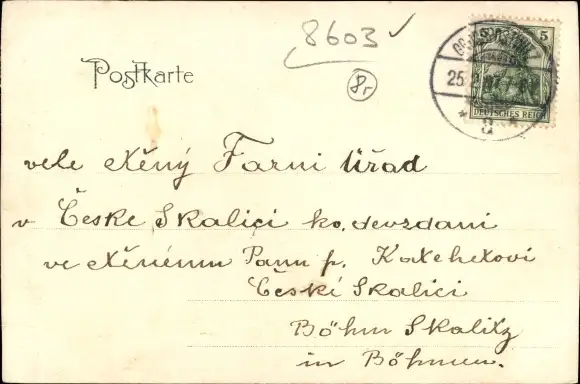 8603
Postkarte
8r
5
25. 2. 07. 7-8
DEUTSCHES REICH
a
vele ctěný Farni Úřad
v Česke Skalici ko. devzdani
ve ctěnému Panu p. Katehetovi
Českí Skalici
Böhm Skalitz
in Böhmen.